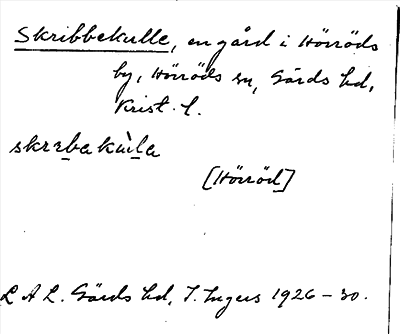 Skribbekulle, en gård i Hörröds
by, Hörröds sn, Gärds hd,
Krist. l.
skrɪbakùla
[Hörröd]
L A L. Gärds hd, I. Ingers 1926-30.